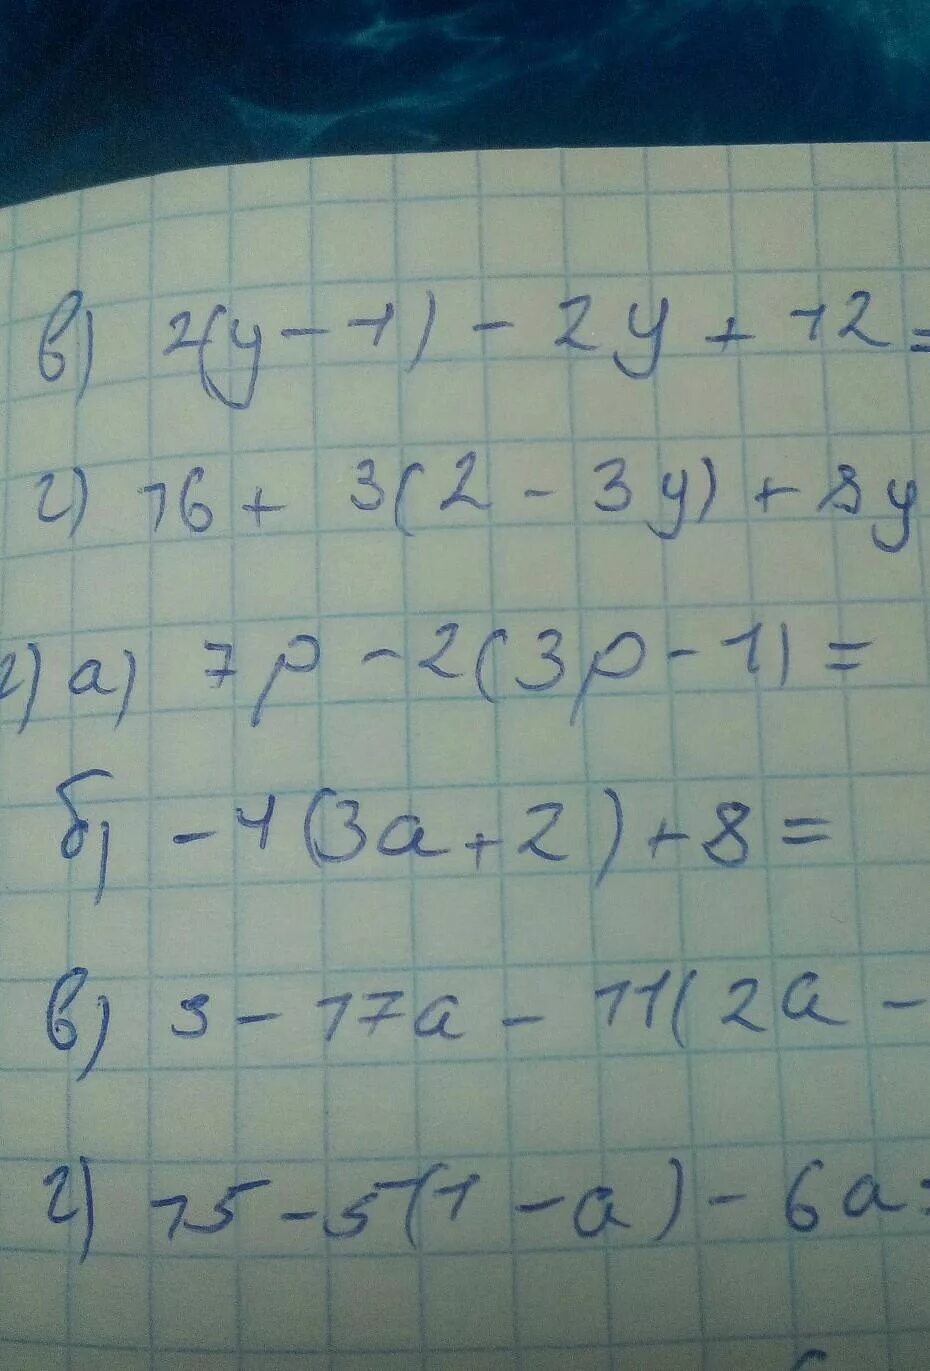 в) 2(y - 1) - 2y + 12 =
г) 16 + 3(2 - 3y) + 8y
2) а) 7p - 2(3p - 1) =
б) -4(3a + 2) + 8 =
в) 3 - 17a - 11(2a -
г) 15 - 5(1 - a) - 6a =